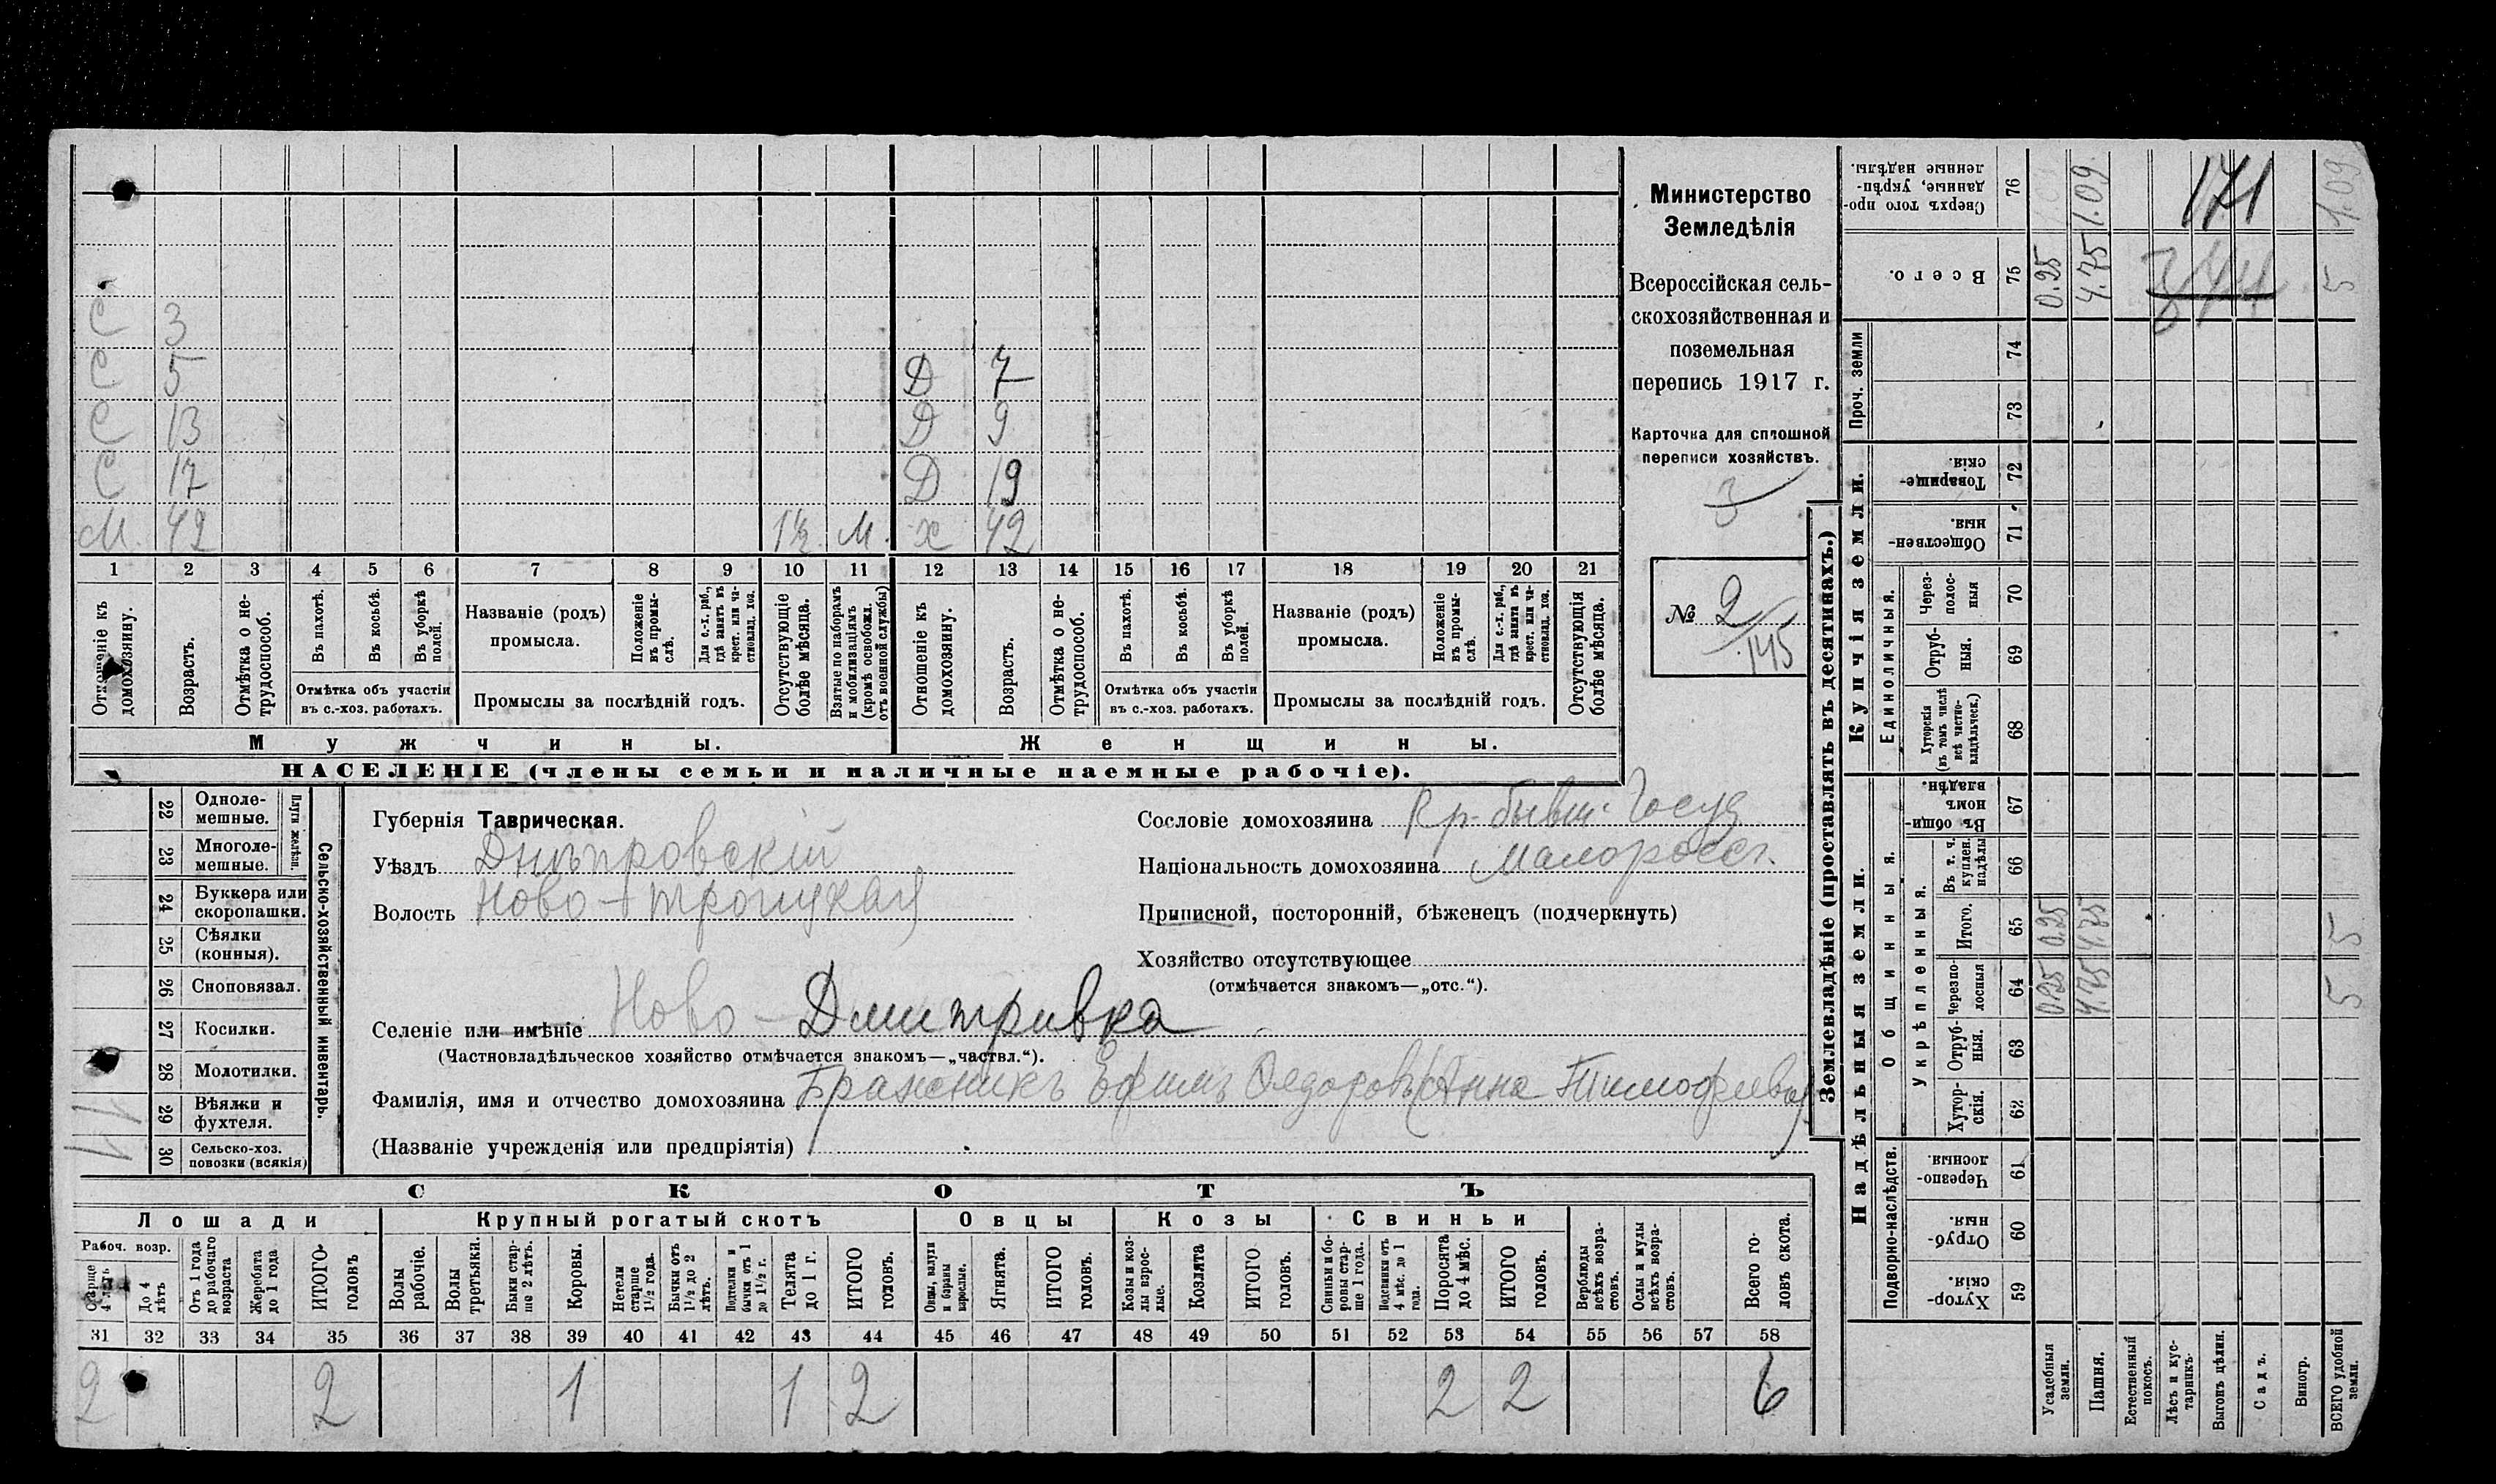 С 3
С 5 Д 7
С 13 Д 9
С 17 Д 19
М. 42 1½ М. х 42
1 2 3 4 5 6 7 8 9 10 11 12 13 14 15 16 17 18 19 20 21
Отношеніе къ домохозяину.
Возрастъ.
Отмѣтка о не-
трудоспособ.
Въ пахотѣ.
Въ косьбѣ.
Въ уборкѣ
полей.
Отмѣтка объ участіи
въ с.-хоз. работахъ.
Названіе (родъ)
промысла.
Положеніе
въ промы-
слѣ.
Для с.-х. раб.,
гдѣ занятъ въ
крест. или ча-
стновлад. хоз.
Промыслы за послѣдній годъ.
Отсутствующіе
болѣе мѣсяца.
Взятые по наборамъ
и мобилизаціямъ
(кромѣ освобожд.
отъ военной службы)
Отношеніе къ
домохозяину.
Возрастъ.
Отмѣтка о не-
трудоспособ.
Въ пахотѣ.
Въ косьбѣ.
Въ уборкѣ
полей.
Отмѣтка объ участіи
въ с.-хоз. работахъ.
Названіе (родъ)
промысла.
Положеніе
въ промы-
слѣ.
Для с.-х. раб.,
гдѣ занята въ
крест. или ча-
стновлад. хоз.
Промыслы за послѣдній годъ.
Отсутствующія
болѣе мѣсяца.
Мужчины. Женщины.
НАСЕЛЕНІЕ (члены семьи и наличные наемные рабочіе).
Министерство
Земледѣлія
Всероссійская сель-
скохозяйственная и
поземельная
перепись 1917 г.
Карточка для сплошной
переписи хозяйствъ.
3
№ 2/145
Сельско-хозяйственный инвентарь.
Плуги желѣзн.
22 Одноле-
мешные.
23 Многоле-
мешные.
24 Буккера или
скоропашки.
25 Сѣялки
(конныя).
26 Сноповязал.
27 Косилки.
28 Молотилки.
29 Вѣялки и
фухтеля.
30 Сельско-хоз.
повозки (всякія)
Губернія Таврическая.
Уѣздъ Днѣпровскій
Волость Ново-Троицкая
Селеніе или имѣніе Ново-Дмитривка
(Частновладѣльческое хозяйство отмѣчается знакомъ—„частвл.“).
Фамилія, имя и отчество домохозяина Бражникъ Ефимъ Федоровъ (Анна Тимофиева)
(Названіе учрежденія или предпріятія)
Сословіе домохозяина Кр. бывш. Госуд
Національность домохозяина Малоросс.
Приписной, посторонній, бѣженецъ (подчеркнуть)
Хозяйство отсутствующее
(отмѣчается знакомъ—„отс.“).
СКОТЪ
Лошади Крупный рогатый скотъ Овцы Козы Свиньи
Рабоч. возр.
Старше
4 лѣтъ
До 4
лѣтъ
Отъ 1 года
до рабочаго
возраста
Жеребята
до 1 года
ИТОГО
головъ
Волы
рабочіе.
Волы
третьяки.
Быки стар-
ше 2 лѣтъ.
Коровы.
Нетели
старше
1½ года.
Бычки отъ
1½ до 2
лѣтъ.
Подтелки и
бычки отъ 1
до 1½ г.
Телята
до 1 г.
ИТОГО
головъ.
Овцы, валухи
и бараны
взрослые.
Ягнята.
ИТОГО
головъ.
Козы и коз-
лы взрос-
лые.
Козлята
ИТОГО
головъ.
Свиньи и бо-
ровы стар-
ше 1 года.
Подсвинки отъ
4 мѣс. до 1
года.
Поросята
до 4 мѣс.
ИТОГО
головъ.
Верблюды
всѣхъ возра-
стовъ.
Ослы и мулы
всѣхъ возра-
стовъ.
Всего го-
ловъ скота.
31 32 33 34 35 36 37 38 39 40 41 42 43 44 45 46 47 48 49 50 51 52 53 54 55 56 57 58
2 2 1 1 2 2 2 6
Землевладѣніе (проставлять въ десятинахъ.)
Надѣльныя земли. Купчія земли. Проч. земли
Подворно-наслѣдств.
Общинныя.
Укрѣпленныя.
Единоличныя.
Сверхъ того про-
данные, укрѣп-
ленные надѣлы.
76 1.09 171 1.09
Всего.
75 0.25 4.75 344 5
74
73
Товарище-
скія.
72
Обществен-
ныя.
71
Через-
полос-
ныя
70
Отруб-
ныя.
69
Хуторскія
(въ томъ числѣ
всѣ частно-
владѣльческ.)
68
Въ общин-
номъ
владѣн.
67
Въ т. ч.
куплен.
надѣлы
66
Итого.
65 0.25 4.75 5
Черезпо-
лосныя
64 0.25 4.75 5
Отруб-
ныя.
63
Хутор-
скія.
62
Черезпо-
лосныя.
61
Отруб-
ныя.
60
Хутор-
скія.
59
Усадебныя
земли.
Пашня.
Естественный
покосъ.
Лѣсъ и кус-
тарникъ.
Выгонъ цѣлин.
Садъ.
Виногр.
ВСЕГО удобной
земли.